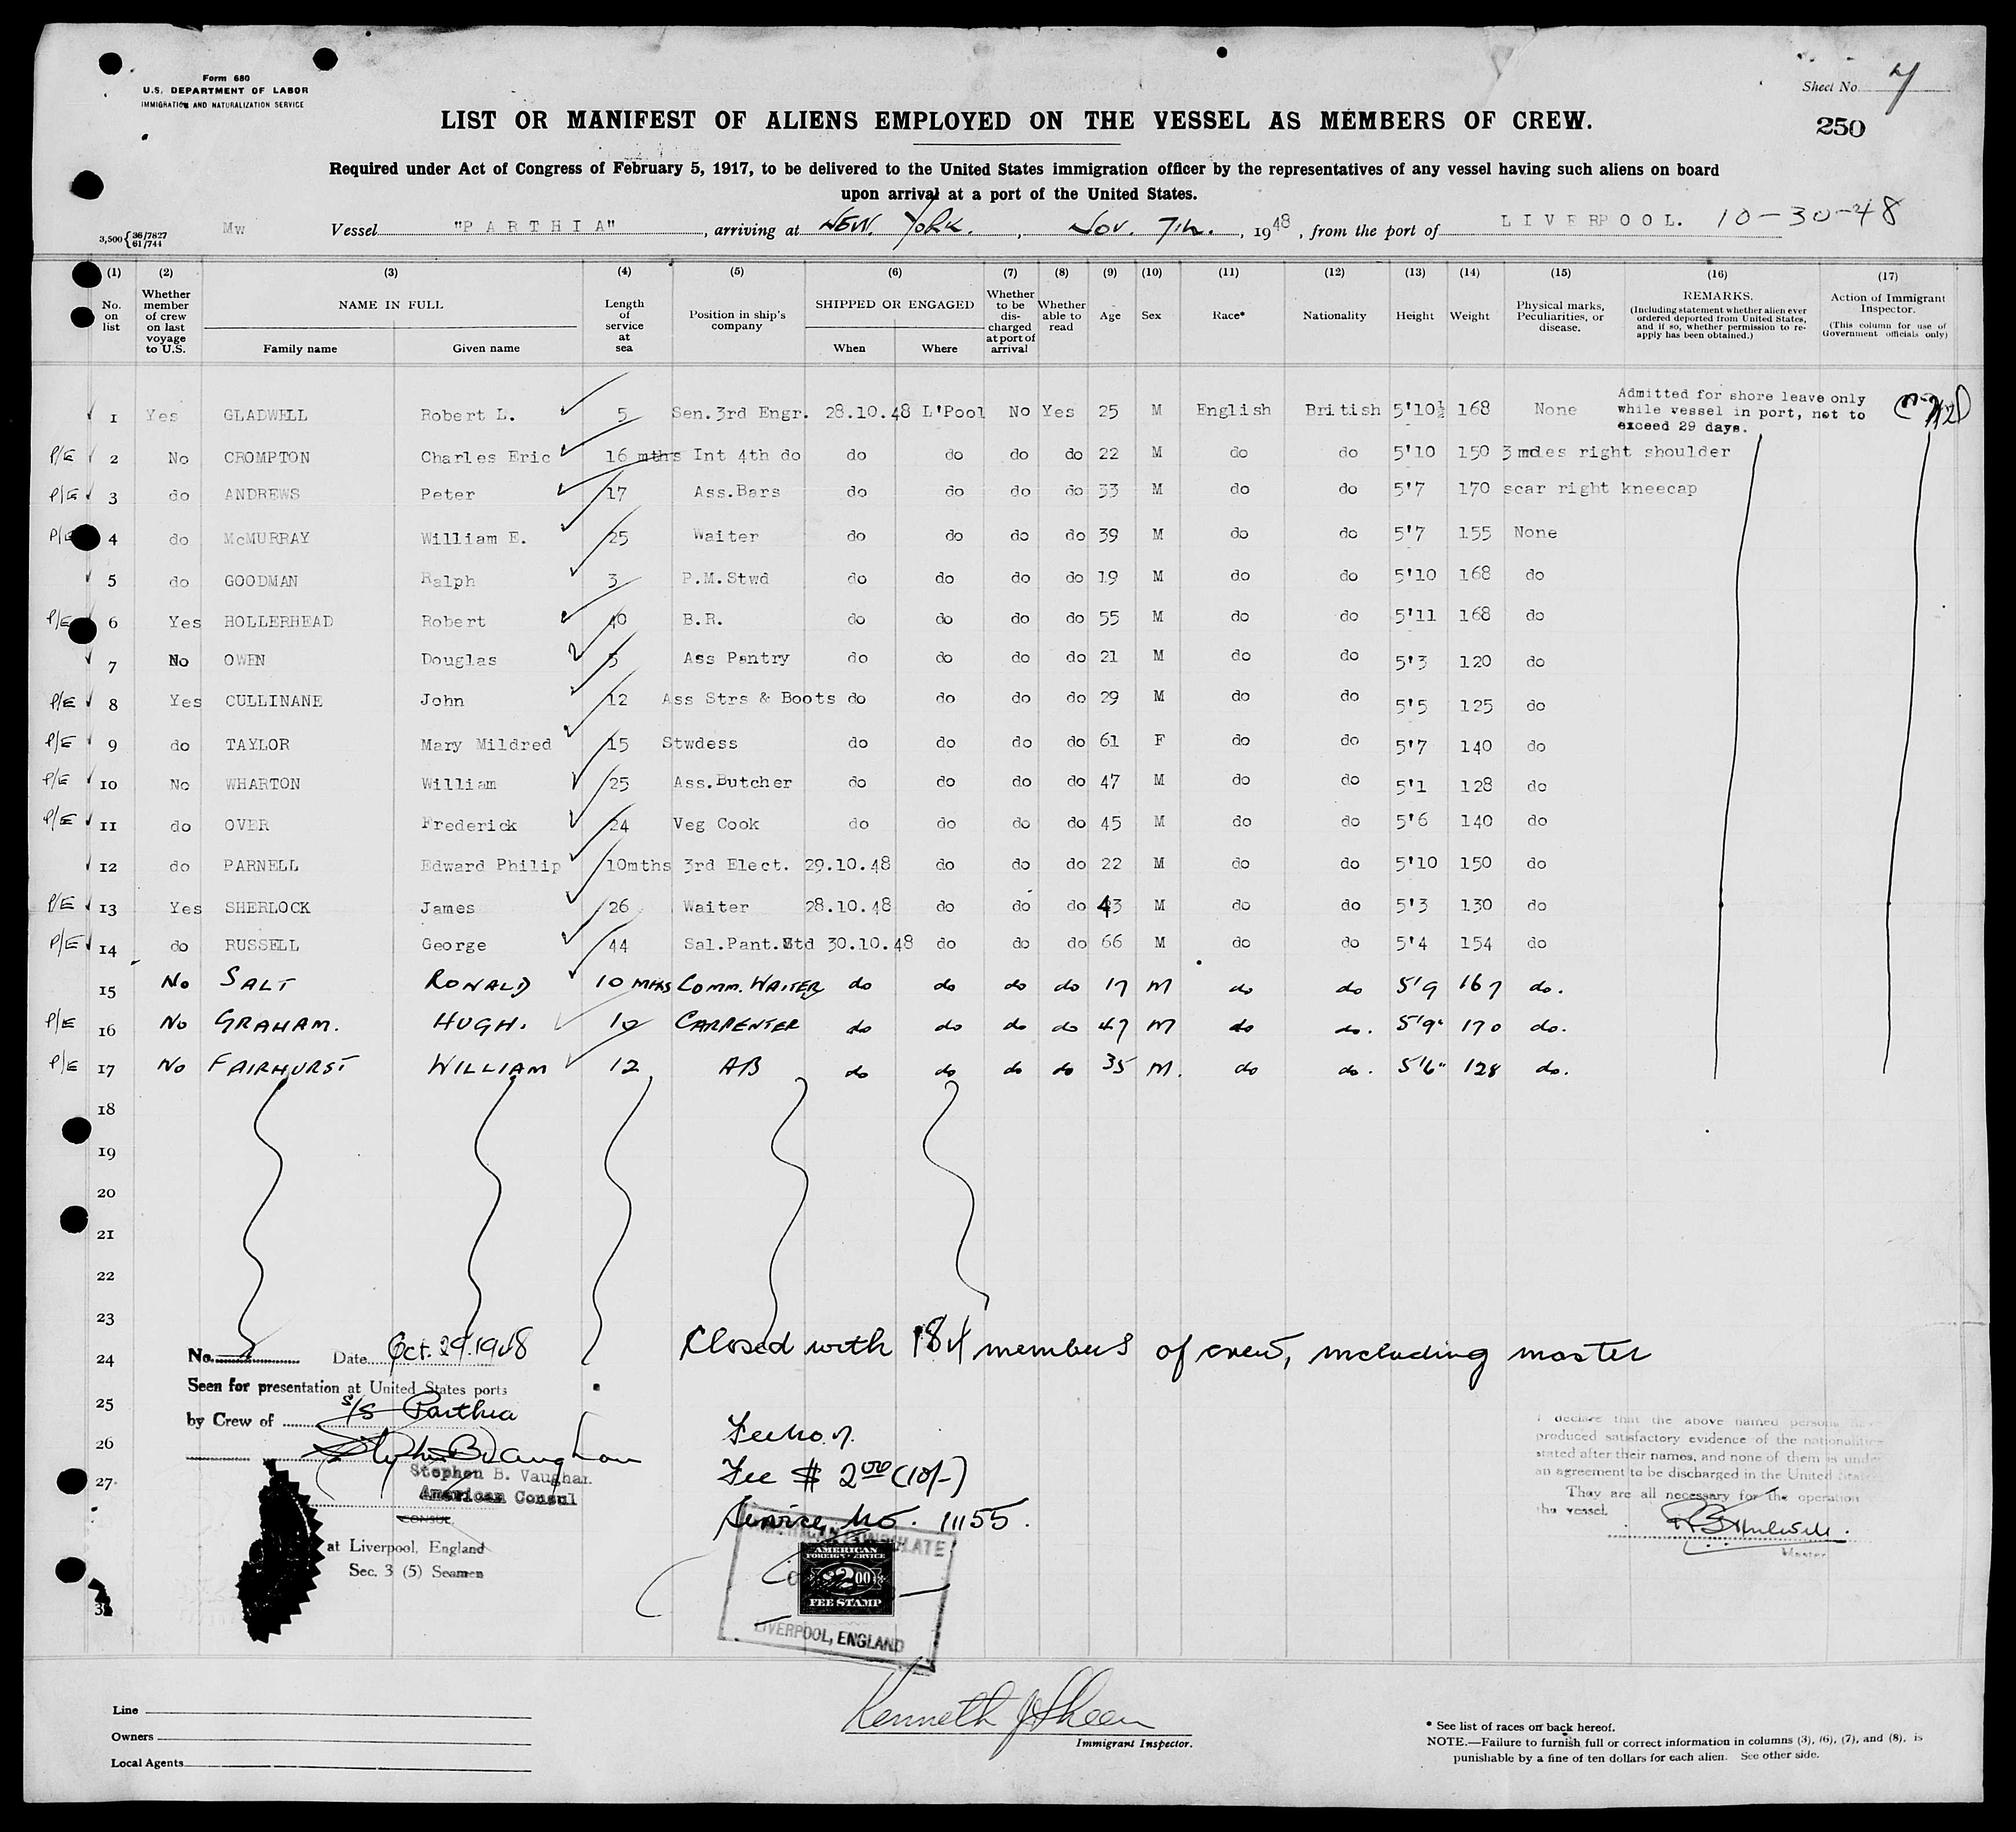 Form 680
U.S. DEPARTMENT OF LABOR
IMMIGRATION AND NATURALIZATION SERVICE
Sheet No. 7
250
LIST OR MANIFEST OF ALIENS EMPLOYED ON THE VESSEL AS MEMBERS OF CREW.
Required under Act of Congress of February 5, 1917, to be delivered to the United States immigration officer by the representatives of any vessel having such aliens on board
upon arrival at a port of the United States.
3,500 {36/7827 61/744 Mw Vessel "PARTHIA", arriving at NEW. YORK., Nov. 7th., 1948, from the port of LIVERPOOL. 10-30-48
(1) (2) (3) (4) (5) (6) (7) (8) (9) (10) (11) (12) (13) (14) (15) (16) (17)
No. on list
Whether member of crew on last voyage to U.S.
NAME IN FULL
Family name Given name
Length of service at sea
Position in ship's company
SHIPPED OR ENGAGED
When Where
Whether to be discharged at port of arrival
Whether able to read
Age
Sex
Race*
Nationality
Height
Weight
Physical marks, Peculiarities, or disease.
REMARKS.
(Including statement whether alien ever ordered deported from United States, and if so, whether permission to reapply has been obtained.)
Action of Immigrant Inspector.
(This column for use of Government officials only)
1 Yes GLADWELL Robert L. 5 Sen.3rd Engr. 28.10.48 L'Pool No Yes 25 M English British 5'10½ 168 None
Admitted for shore leave only
while vessel in port, not to
exceed 29 days.
P/E 2 No CROMPTON Charles Eric 16 mths Int 4th do do do do do 22 M do do 5'10 150 3 moles right shoulder
P/E 3 do ANDREWS Peter 17 Ass.Bars do do do do 33 M do do 5'7 170 scar right kneecap
P/E 4 do McMURRAY William E. 25 Waiter do do do do 39 M do do 5'7 155 None
5 do GOODMAN Ralph 3 P.M.Stwd do do do do 19 M do do 5'10 168 do
P/E 6 Yes HOLLERHEAD Robert 40 B.R. do do do do 55 M do do 5'11 168 do
7 No OWEN Douglas 5 Ass Pantry do do do do 21 M do do 5'3 120 do
P/E 8 Yes CULLINANE John 12 Ass Strs & Boots do do do do 29 M do do 5'5 125 do
P/E 9 do TAYLOR Mary Mildred 15 Stwdess do do do do 61 F do do 5'7 140 do
P/E 10 No WHARTON William 25 Ass.Butcher do do do do 47 M do do 5'1 128 do
P/E 11 do OVER Frederick 24 Veg Cook do do do do 45 M do do 5'6 140 do
12 do PARNELL Edward Philip 10mths 3rd Elect. 29.10.48 do do do 22 M do do 5'10 150 do
P/E 13 Yes SHERLOCK James 26 Waiter 28.10.48 do do do 43 M do do 5'3 130 do
P/E 14 do RUSSELL George 44 Sal.Pant.Std 30.10.48 do do do 66 M do do 5'4 154 do
15 No SALT RONALD 10 MTHS COMM. WAITER do do do do 17 M do do 5'9 167 do.
P/E 16 No GRAHAM. HUGH. 10 CARPENTER do do do do 47 M do do. 5'9" 170 do.
P/E 17 No FAIRHURST WILLIAM 12 AB do do do do 35 M. do do. 5'6" 128 do.
18
19
20
21
22
23
24 Closed with 184 members of crew, including master
25
26
27
No. Date Oct. 29. 1948
Seen for presentation at United States ports
by Crew of S/S Parthia
Stephen B. Vaughan
Stephen B. Vaughan
American Consul
CONSUL
at Liverpool, England
Sec. 3 (5) Seamen
Fee No. 7.
Fee $ 2.00 (10/-)
Service No. 11155.
AMERICAN CONSULATE
AMERICAN
FOREIGN SERVICE
$2.00
FEE STAMP
LIVERPOOL, ENGLAND
I declare that the above named persons have
produced satisfactory evidence of the nationalities
stated after their names, and none of them is under
an agreement to be discharged in the United States
They are all necessary for the operation
the vessel.
Master
Line
Owners
Local Agents
Kenneth J Sheen
Immigrant Inspector.
* See list of races on back hereof.
NOTE.—Failure to furnish full or correct information in columns (3), (6), (7), and (8), is
punishable by a fine of ten dollars for each alien. See other side.